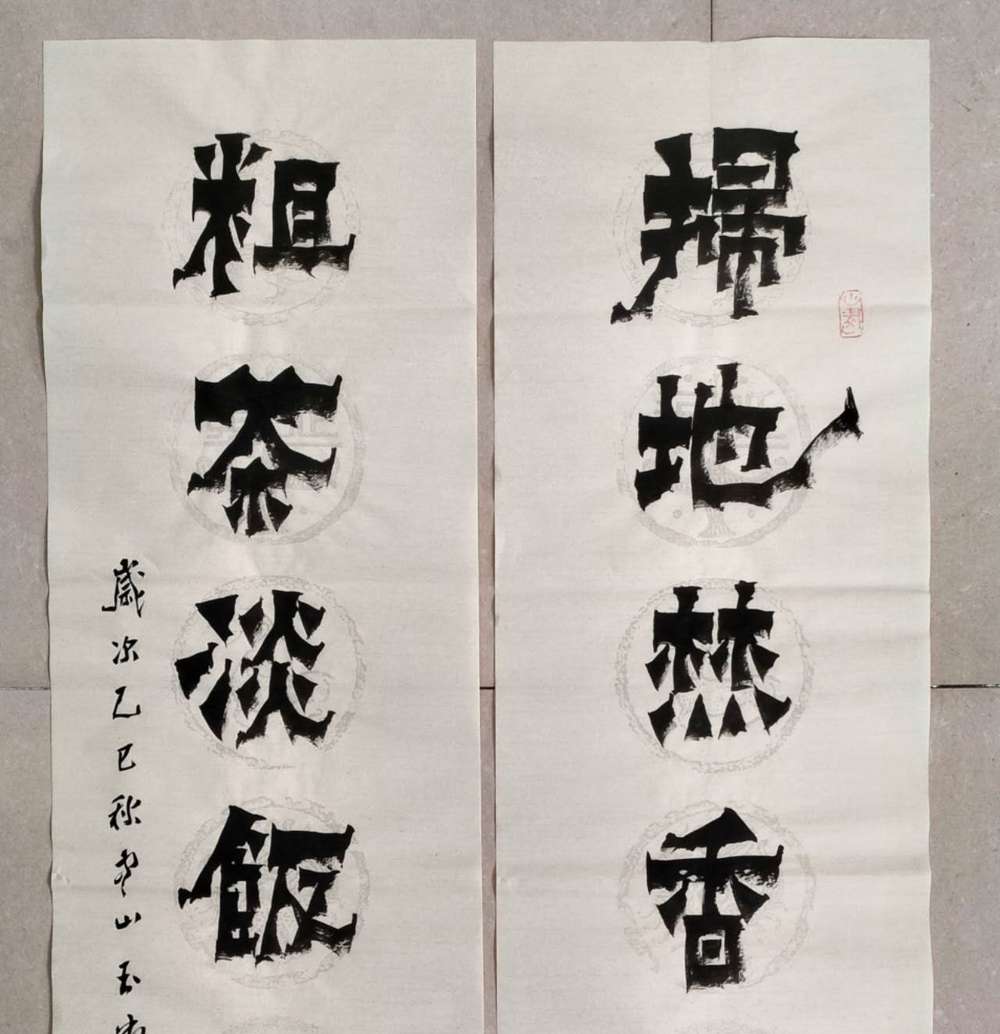 掃地焚香
粗茶淡飯
歲次乙巳秋山玉